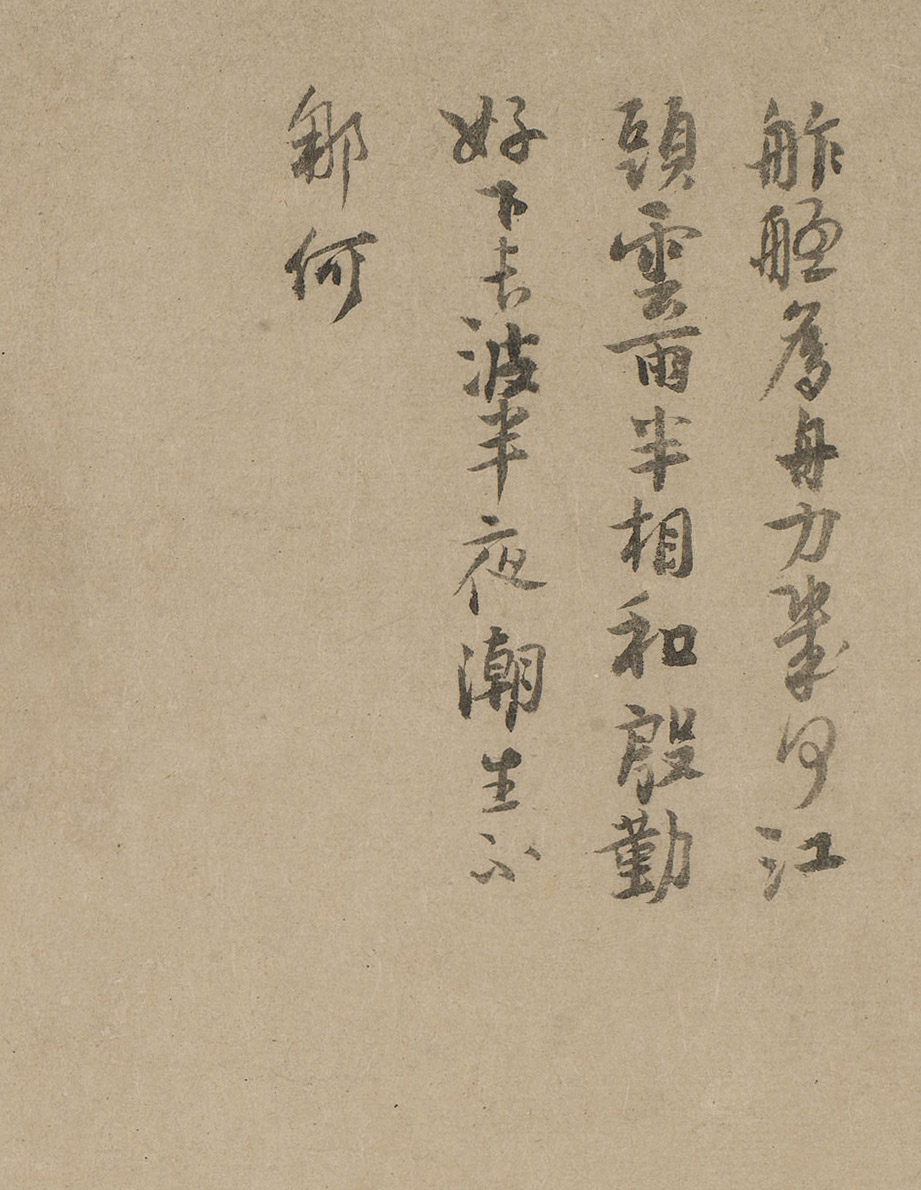 舴艋為舟力幾何江
頭雲雨半相和殷勤
好下長波半夜潮生不
那何